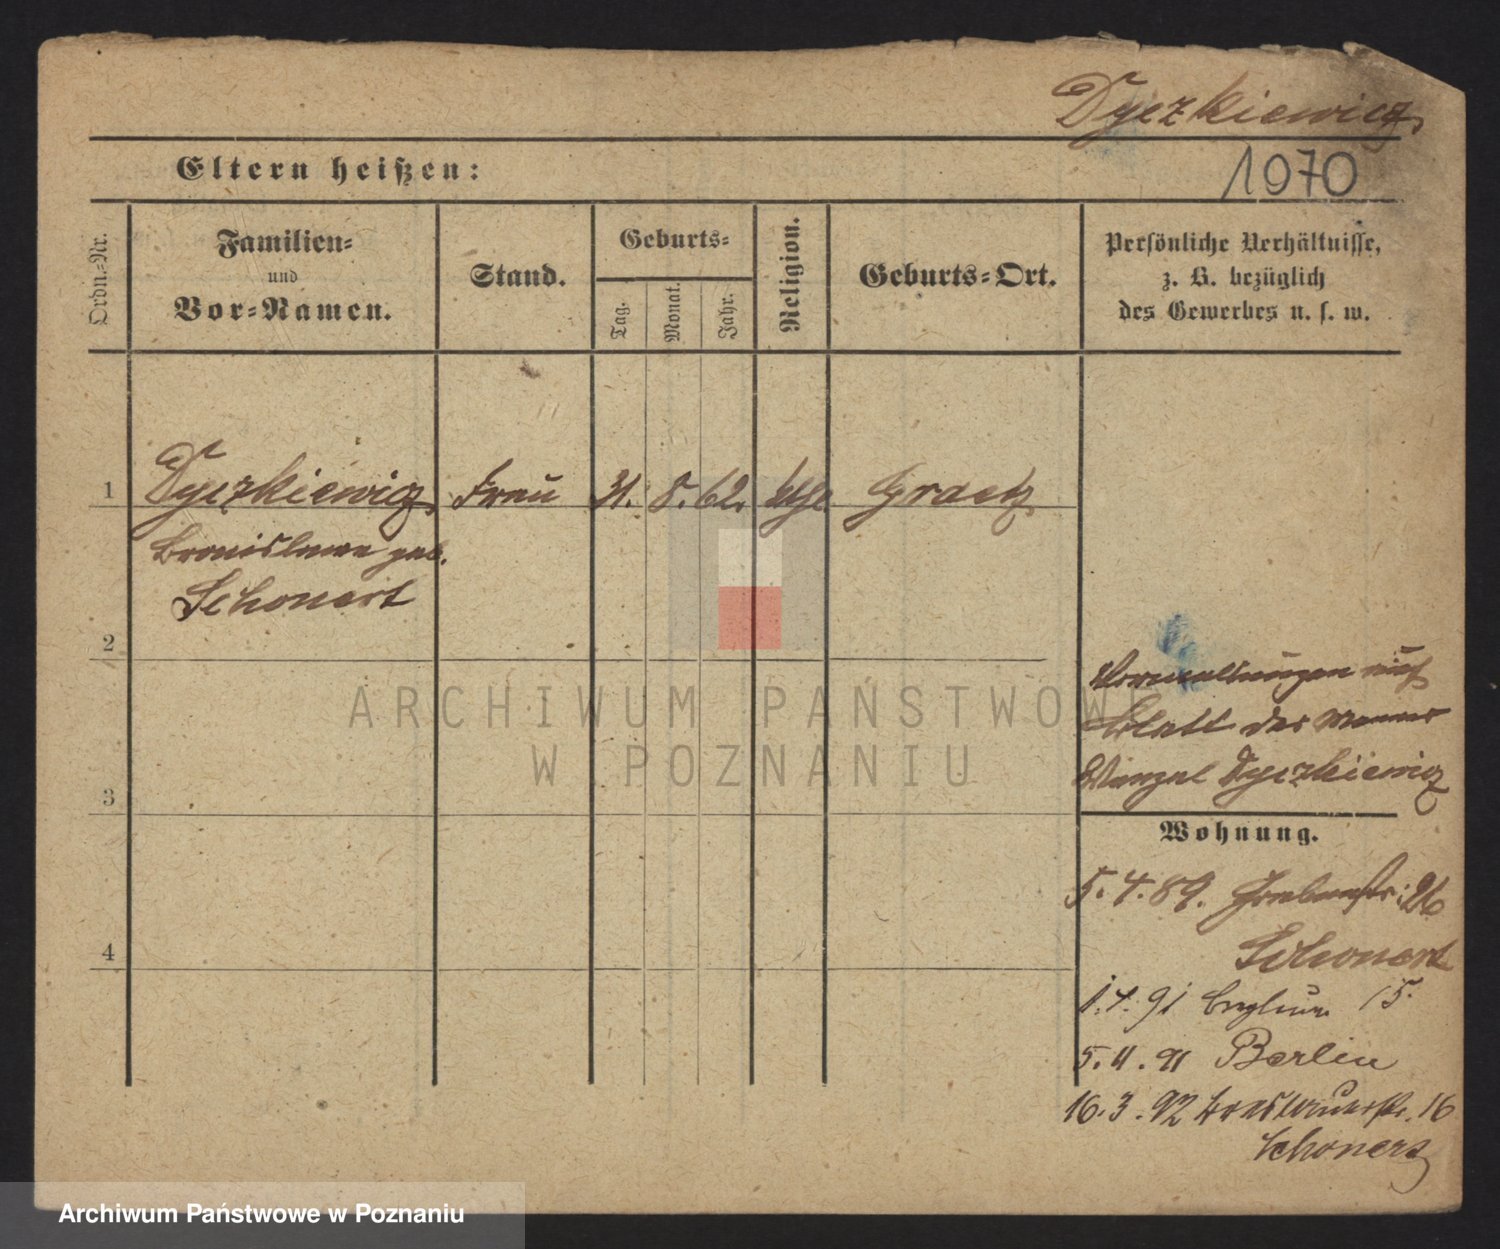 Dyczkiewicz
Eltern heißen:
1070
Ordn.-Nr.
Familien-
und
Vor-Namen.
Stand.
Geburts-
Tag.
Monat.
Jahr.
Religion.
Geburts-Ort.
Persönliche Verhältnisse,
z. B. bezüglich
des Gewerbes u. s. w.
1
Dyczkiewicz
Frau
31.
8.
62.
Graetz
Bronislawa geb.
Schonert
2
Blatt des Mannes
Wenzel Dyczkiewicz
3
Wohnung.
5.4.89. Grabenstr. 26
Schonert
4
1.4.91 15.
5.11.91 Berlin
16.3.92 Breslauerstr. 16
Schonert
ARCHIWUM PAŃSTWOWE
W POZNANIU
Archiwum Państwowe w Poznaniu